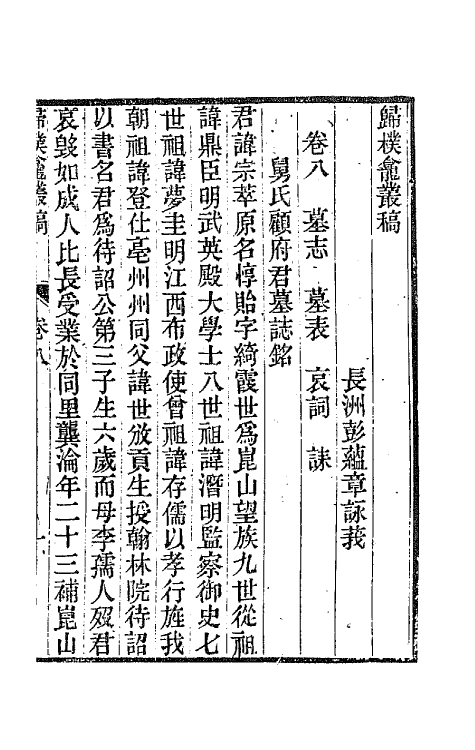 歸樸龕叢稿
長洲彭蘊章詠莪
卷八 墓志 墓表 哀詞 誄
舅氏顧府君墓誌銘
君諱宗萃原名惇貽字綺霞世爲崑山望族九世從祖
諱鼎臣明武英殿大學士八世祖諱潛明監察御史七
世祖諱夢圭明江西布政使曾祖諱存儒以孝行旌我
朝祖諱登仕亳州州同父諱世攽貢生授翰林院待詔
以書名君爲待詔公第三子生六歲而母李孺人歿君
哀毀如成人比長受業於同里龔淪年二十三補崑山
歸樸龕叢稿 卷八 一